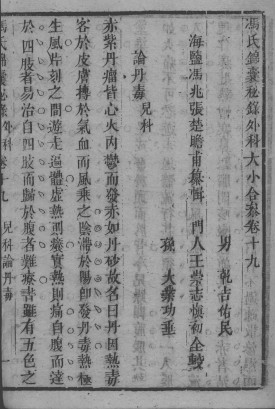 馮氏錦囊秘錄外科大小合纂卷十九
海鹽馮兆張楚瞻甫纂輯　門人王崇志慎初仝較
男　乾吉佑民
孫　大業功垂
論丹毒　兒科
赤紫丹瘤皆心火內鬱而發赤如丹砂故名曰丹因熱毒
客於皮膚摶於氣血而風乘之陰滯於陽即發丹毒熱極
生風片刻之間遊走遍體虛熱則癢實熱則痛自腹而達
於四肢者易治自四肢而歸於腹者難療書雖有五色之
兒科論丹毒　一